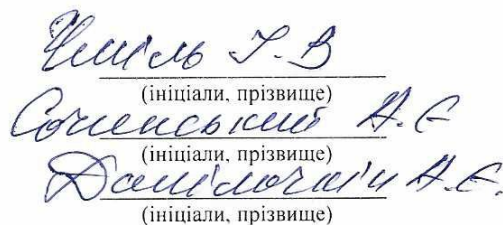 Чміль І. В
(ініціали, прізвище)
Сочинський А. Є
(ініціали, прізвище)
Данілочкін А. Є.
(ініціали, прізвище)